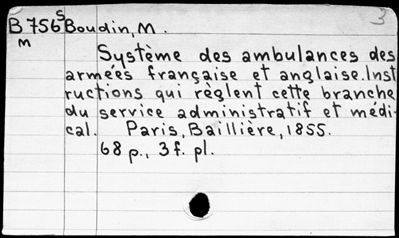 3
B 756 S Boudin, M.
M
Système des ambulances des
armées française et anglaise. Inst
ructions qui règlent cette branche
du service administratif et médi-
cal. Paris, Baillière, 1855.
68 p., 3 f. pl.